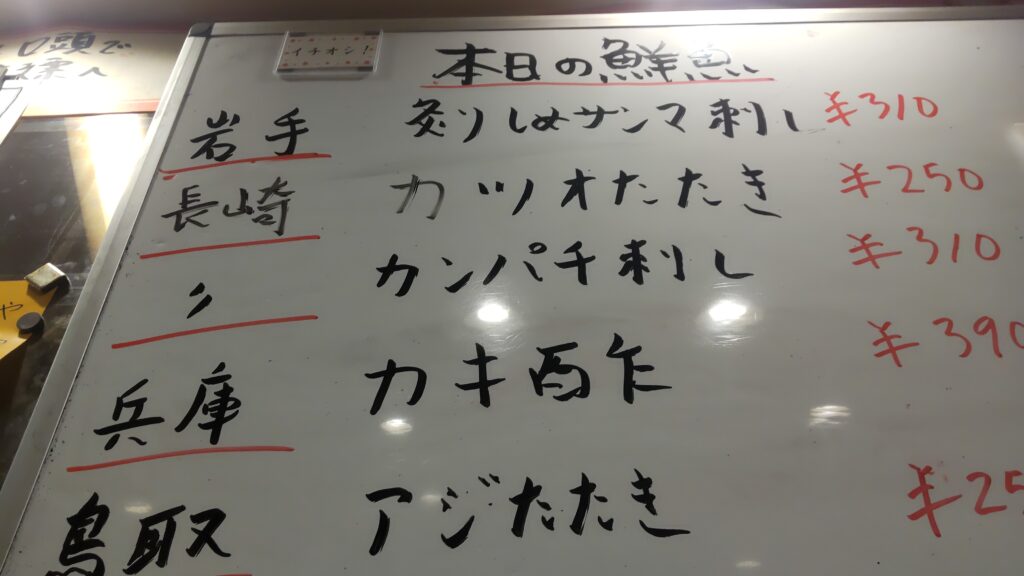 イチオシ!
本日の鮮魚
岩手 炙りしめサンマ刺し ¥310
長崎 カツオたたき ¥250
〃 カンパチ刺し ¥310
兵庫 カキ酢 ¥390
鳥取 アジたたき ¥25
口頭で
や